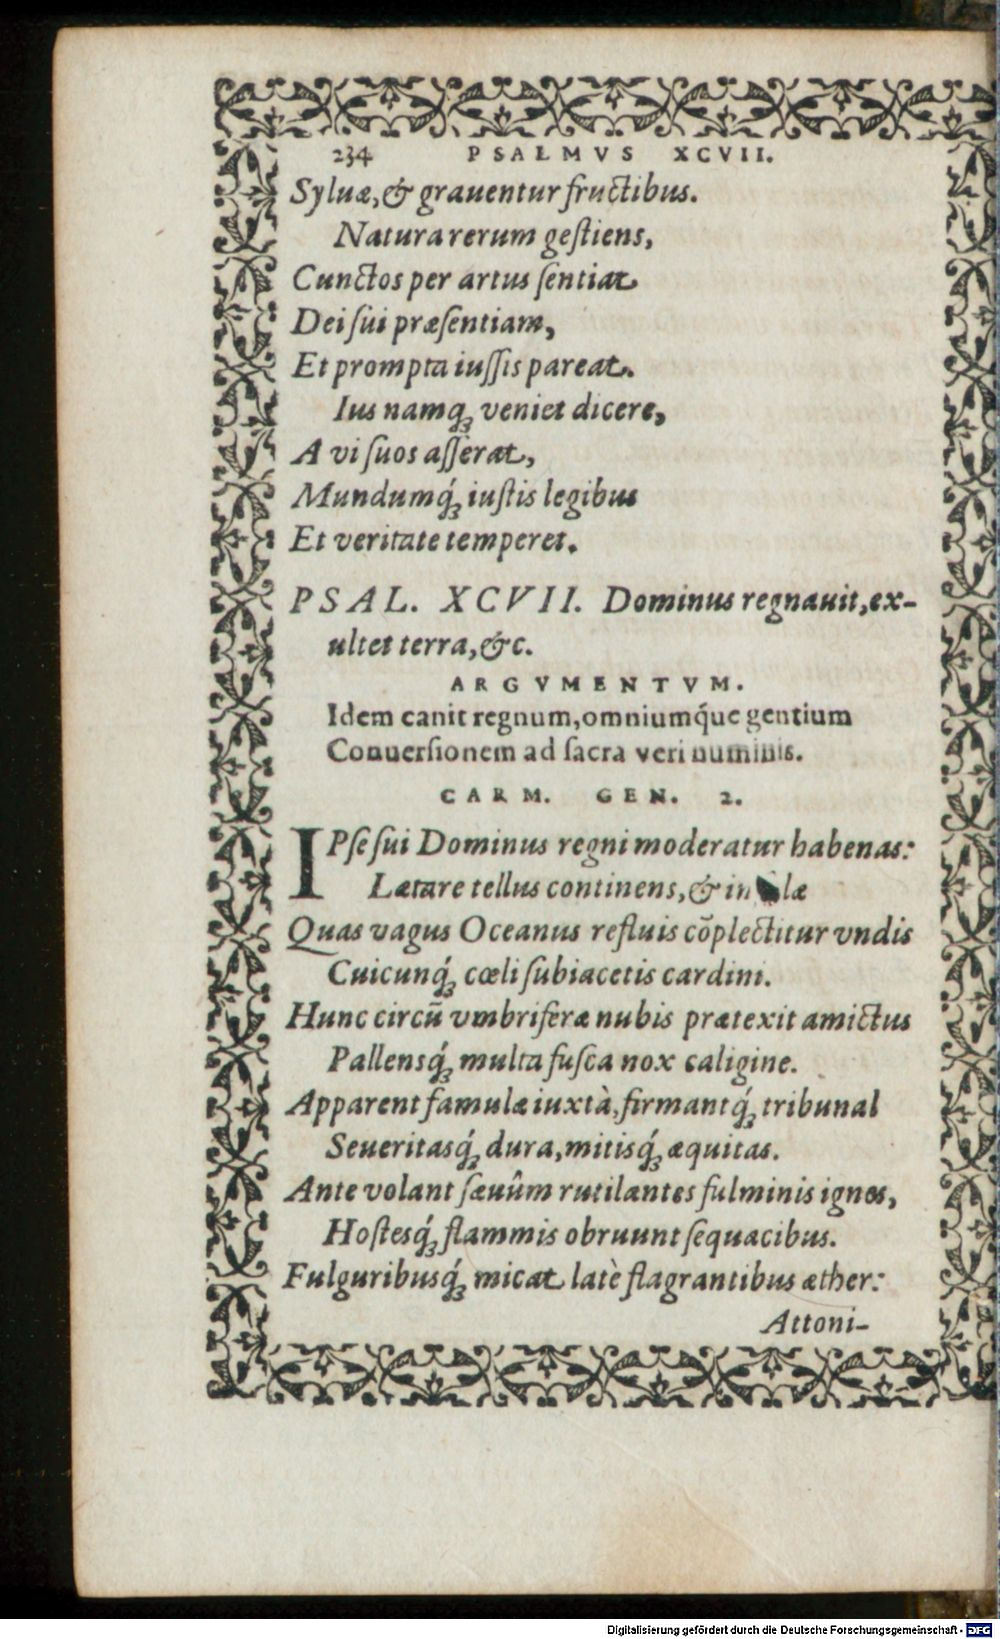 234 PSALMVS XCVII.
Syluæ, & grauentur fructibus.
Natura rerum geſtiens,
Cunctos per artus ſentiat
Dei ſui præſentiam,
Et prompta iuſſis pareat.
Ius namq́ꝫ veniet dicere,
A vi ſuos aſſerat,
Mundumq́ꝫ iuſtis legibus
Et veritate temperet.
PSAL. XCVII. Dominus regnauit, ex-
ultet terra, &c.
ARGVMENTVM.
Idem canit regnum, omniumq́ue gentium
Conuerſionem ad ſacra veri numinis.
CARM. GEN. 2.
IPſe ſui Dominus regni moderatur habenas:
Lætare tellus continens, &
Quas vagus Oceanus refluis cõplectitur vndis
Cuicunq́ꝫ cœli ſubiacetis cardini.
Hunc circũ vmbriferæ nubis prætexit amictus
Pallensq́ꝫ multa fuſca nox caligine.
Apparent famulæ iuxtà, firmantq́ꝫ tribunal
Seueritasq́ꝫ dura, mitisq́ꝫ æquitas.
Ante volant ſæuûm rutilantes fulminis ignes,
Hoſtesq́ꝫ flammis obruunt ſequacibus.
Fulguribusq́ꝫ micat latè flagrantibus æther:
Attoni-
Digitalisierung gefördert durch die Deutsche Forschungsgemeinschaft - DFG